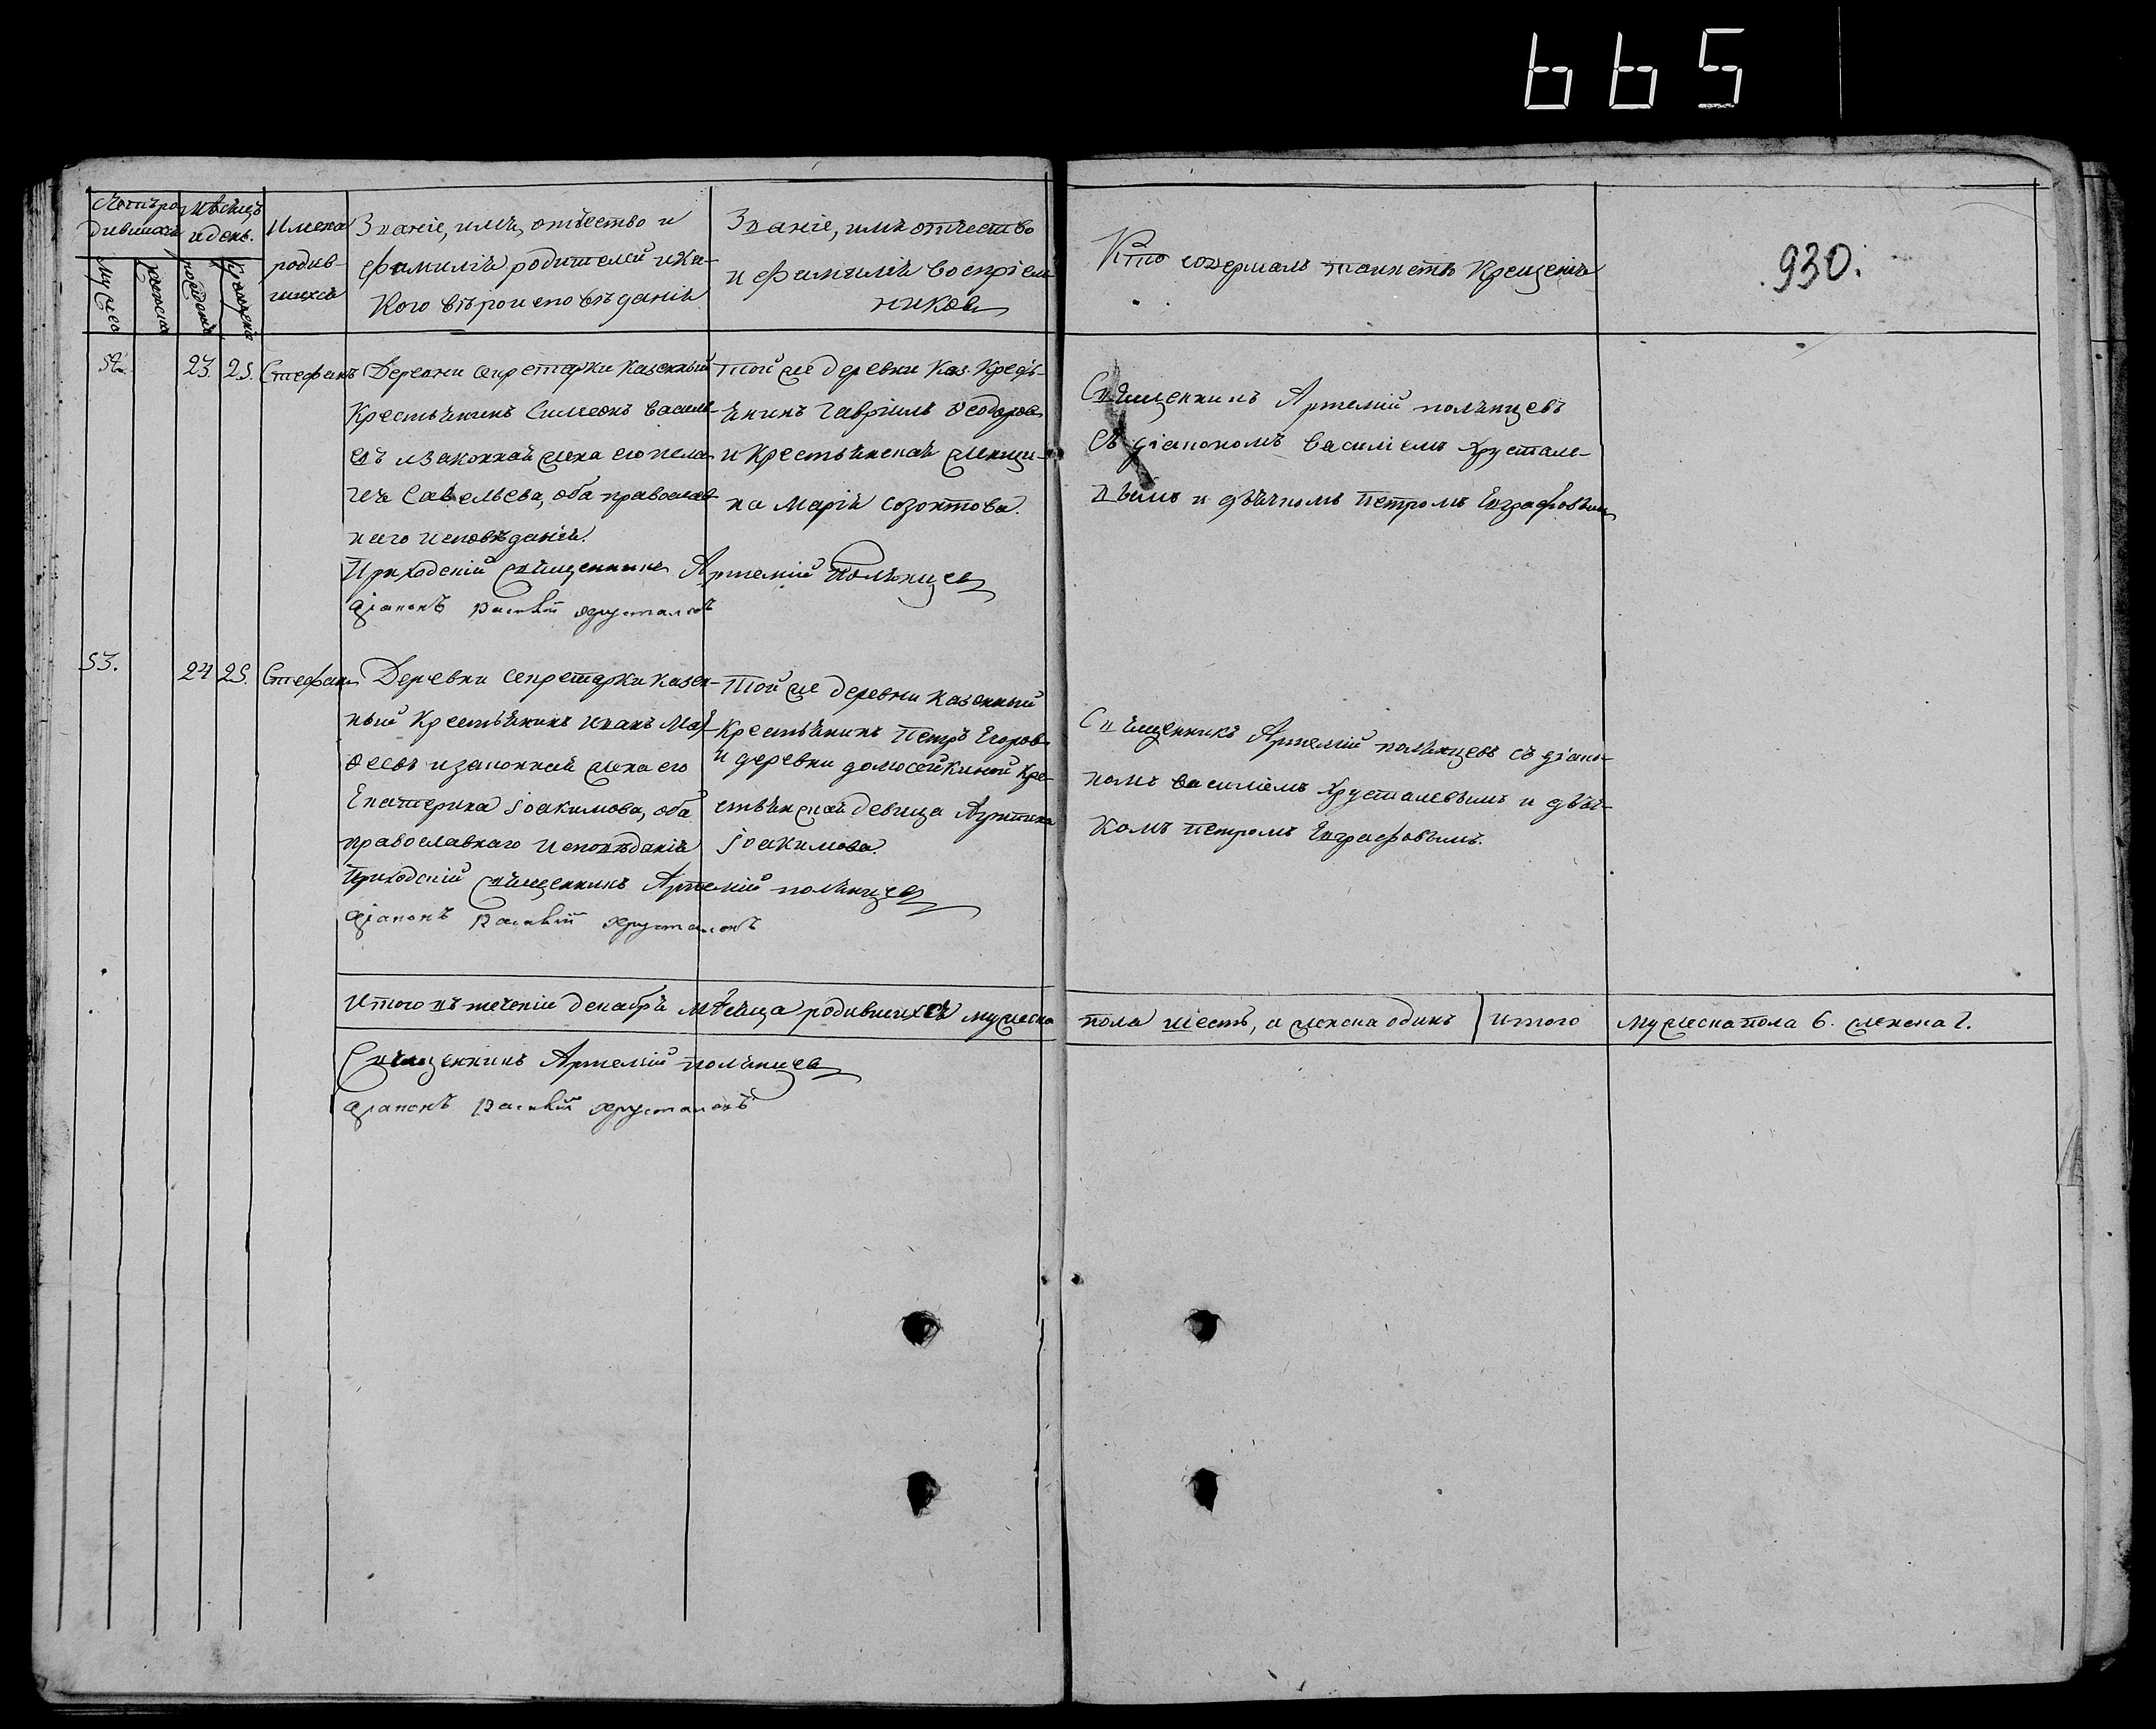 665
930.
Счетъ ро-
дившихся
Мѣсяцъ
и день.
Мужеска
Женска
рожденія
Крещенія
Имена
родив-
шихся
Званіе, имя, отчество и
фамилія родителей и ка-
кого вѣроисповѣданія
Званіе, имя отчество
и фамилія воспріем
никовъ
Кто совершалъ таинство Крещенія
52.
23.
25.
Стефанъ
Деревни Секретарки казенный
Крестьянинъ Симеонъ Василь-
евъ и законная жена его Пела-
гія Савельева, оба православ-
наго исповѣданія.
Приходскій священникъ Артемій Полянцевъ
Діаконъ Василій Хрусталевъ
той же деревни Каз. Кресть-
янинъ Гавріилъ Ѳеодоровъ
и Крестьянская женщи-
на Марія Созонтова.
Священникъ Артемій Полянцевъ
съ діакономъ Василіемъ Хрустале-
вымъ и дьячкомъ Петромъ Евграфовымъ
53.
24
25.
Стефанъ
Деревни Секретарки казен-
ный Крестьянинъ Иванъ Мат-
ѳеевъ и законная жена его
Екатерина Іоакимова, оба
православнаго исповѣданія
Приходскій священникъ Артемій Полянцевъ
Діаконъ Василій Хрусталевъ
той же деревни казенный
Крестьянинъ Петръ Егоровъ
и деревни Домосейкиной Кре-
стьянская девица
Іоакимова.
Священникъ Артемій Полянцевъ съ діако-
номъ Василіемъ Хрусталевымъ и дьяч-
комъ Петромъ Евграфовымъ.
Итого въ теченіи декабря мѣсяца родившихся мужеска пола шесть, а женска одинъ итого мужеска пола 6. женска 1.
Священникъ Артемій Полянцевъ
Діаконъ Василій Хрусталевъ